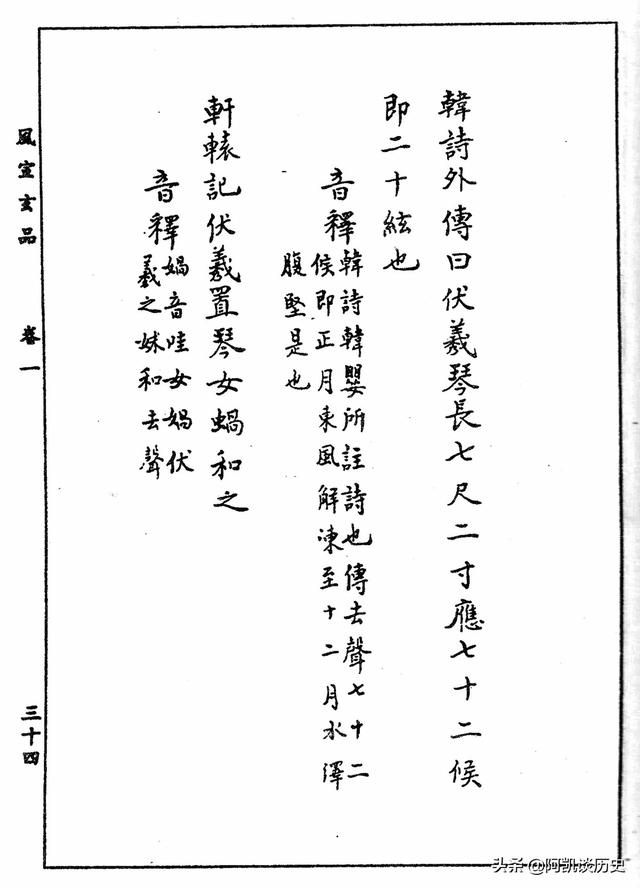 韓詩外傳曰伏羲琴長七尺二寸應七十二候
即二十絃也
音釋
韓詩韓嬰所註詩也傳去聲七十二
候即正月東風解凍至十二月水澤
腹堅是也
軒轅記伏羲置琴女蝸和之
音釋
媧音哇女媧伏
羲之妹和去聲
風宣玄品
卷一
三十四
头条 @阿凯谈历史